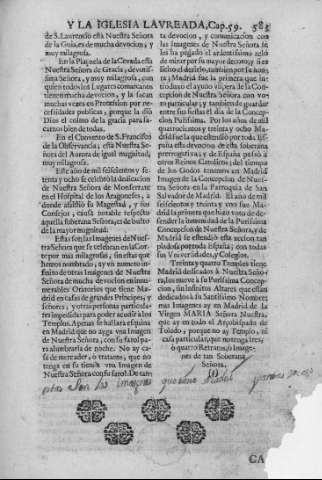 Y LA IGLESIA LAVREADA, Cap. 59. 585
de S. Laurensio està Nuestra Señora
de la Guia, es de mucha devocion, y
muy milagrosa.
En la Plaçuela de la Cevada està
Nuestra Señora de Gracia, devotis-
sima Señora, y muy milagrosa, con
quien todos los Lugares comarcanos
tienen mucha devocion, y la sacan
muchas vezes en Procession por ne-
cessidades publicas, porque la diò
Dios el titulo de la gracia para sa-
carnos bien de todas.
En el Convento de S. Francisco
de la Observancia, està Nuestra Se-
ñora del Aurora de igual magnitud,
muy milagrosa.
Este año de mil seiscientos y se-
tenta y ocho se celebrò la dedicacion
de Nuestra Señora de Monserrate
en el Hospital de los Aragoneses, à
donde assistiò su Magestad, y sus
Consejos, causa notable respecto
aquella Señora, es de busto
de la mayor magnitud.
Estas son las Imagenes de Nues-
tra Señora que se celebran en la Cor-
te por mas milagrosas, sin estas que
hemos nombrado, ay vn numero in-
finito de otras Imagenes de Nuestra
Señora de mucha devocion en innu-
merables Oratorios que tiene Ma-
drid en casas de grandes Principes, y
señores, y otras personas particula-
res impedidas para poder acudir a los
Templos. Apenas se hallarà esquina
en Madrid que no aya vna Imagen
de Nuestra Señora, con su farol pa-
ra alumbrarla de noche. No ay ca-
sa de mercader, ò tratante, que no
tenga en su tienda vna Imagen de
Nuestra Señora con su farol. De tan-
ta devocion, y comunicacion con
las Imagenes de Nuestra Señora se
les ha pegado el ardentissimo zelo
de mirar por su mayor decoro; y si en
ta Madrid fue la primera que in-
troduxo el ayuno vispera de la Con-
cepcion de Nuestra Señora con vo-
to particular, y tambien de guardar
entre sus fiestas el dia de la Concep-
cion Purissima. Por los años de mil
quatrocientos y treinta y ocho Ma-
drid hizo la que estendiò por toda España
esta devocion de esta soberana
prerrogativa, y de España passò à
otros Reinos Catolicos; del tiempo
de los Godos tenemos en Madrid
Imagen de la Concepcion de Nues-
tra Señora en la Parroquia de San
Salvador de Madrid. El año de mil
seiscientos y treinta y vno fue Ma-
drid la primera que hizo voto de de-
fender la inmunidad de la Purissima
Concepcion de Nuestra Señora, y de
Madrid se estendiò esta accion tan
piadosa por toda España, con todas
sus Vniversidades, y Colegios.
Treinta y quatro Templos tiene
Madrid dedicados à Nuestra Seño-
ra, los nueve à su Purissima Concep-
cion, sin infinitos Altares que estàn
dedicados à su Santissimo Nombre;
mas Imagenes ay en Madrid de la
Virgen MARIA Señora Nuestra,
que ay en todo el Arçobispado de
Toledo; porque no ay Templo, ni
casa particular, que no tenga tres,
ò quatro Retratos, ò Image-
nes de tan Soberana
Señora.
(§)
Son las Imagenes que
CA